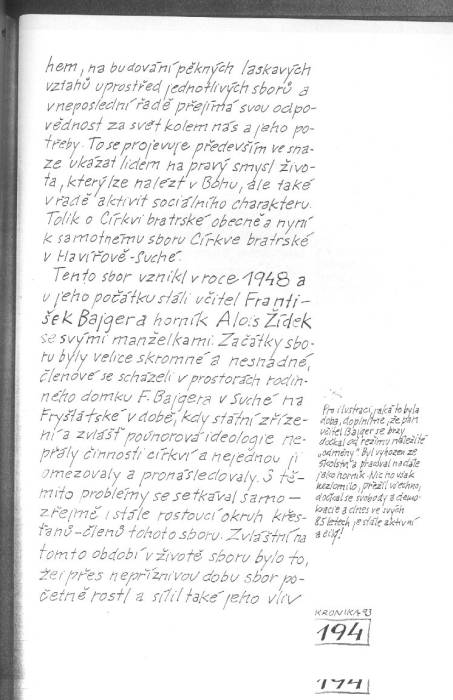 hem, na budování pěkných laskavých
vztahů uprostřed jednotlivých sborů a
v neposlední řadě přejímá svou odpo-
vědnost za svět kolem nás a jeho po-
třeby. To se projevuje především ve sna-
ze ukázat lidem na pravý smysl živo-
ta, který lze nalézt v Bohu, ale také
v řadě aktivit sociálního charakteru.
Tolik o Církvi bratrské obecně a nyní
k samotnému sboru Církve bratrské
v Havířově-Suché.
Tento sbor vznikl v roce 1948 a
u jeho počátku stáli učitel Franti-
šek Bajger a horník Alois Žídek
se svými manželkami. Začátky sbo-
ru byly velice skromné a nesnadné,
členové se scházeli v prostorách rodin-
ného domku F. Bajgera v Suché na
Fryštátské v době, kdy státní zříze-
ní a zvlášť poúnorová ideologie ne-
přály činnosti církví a nejednou ji
omezovaly a pronásledovaly. S tě-
mito problémy se setkával samo-
zřejmě i stále rostoucí okruh křes-
ťanů-členů tohoto sboru. Zvláštní na
tomto období v životě sboru bylo to,
že i přes nepříznivou dobu sbor po-
četně rostl a sílil také jeho vliv
Pro ilustraci, jaká to byla
doba, doplníme, že pan
učitel Bajger se brzy
dočkal od režimu náležité
"odměny". Byl vyhozen ze
školství a pracoval nadále
jako horník. Nic ho však
nezlomilo, přežil všechno,
dočkal se svobody a demo-
kracie a dnes ve svých
85 letech je stále aktivní
a čilý!
KRONIKA 93
194
194